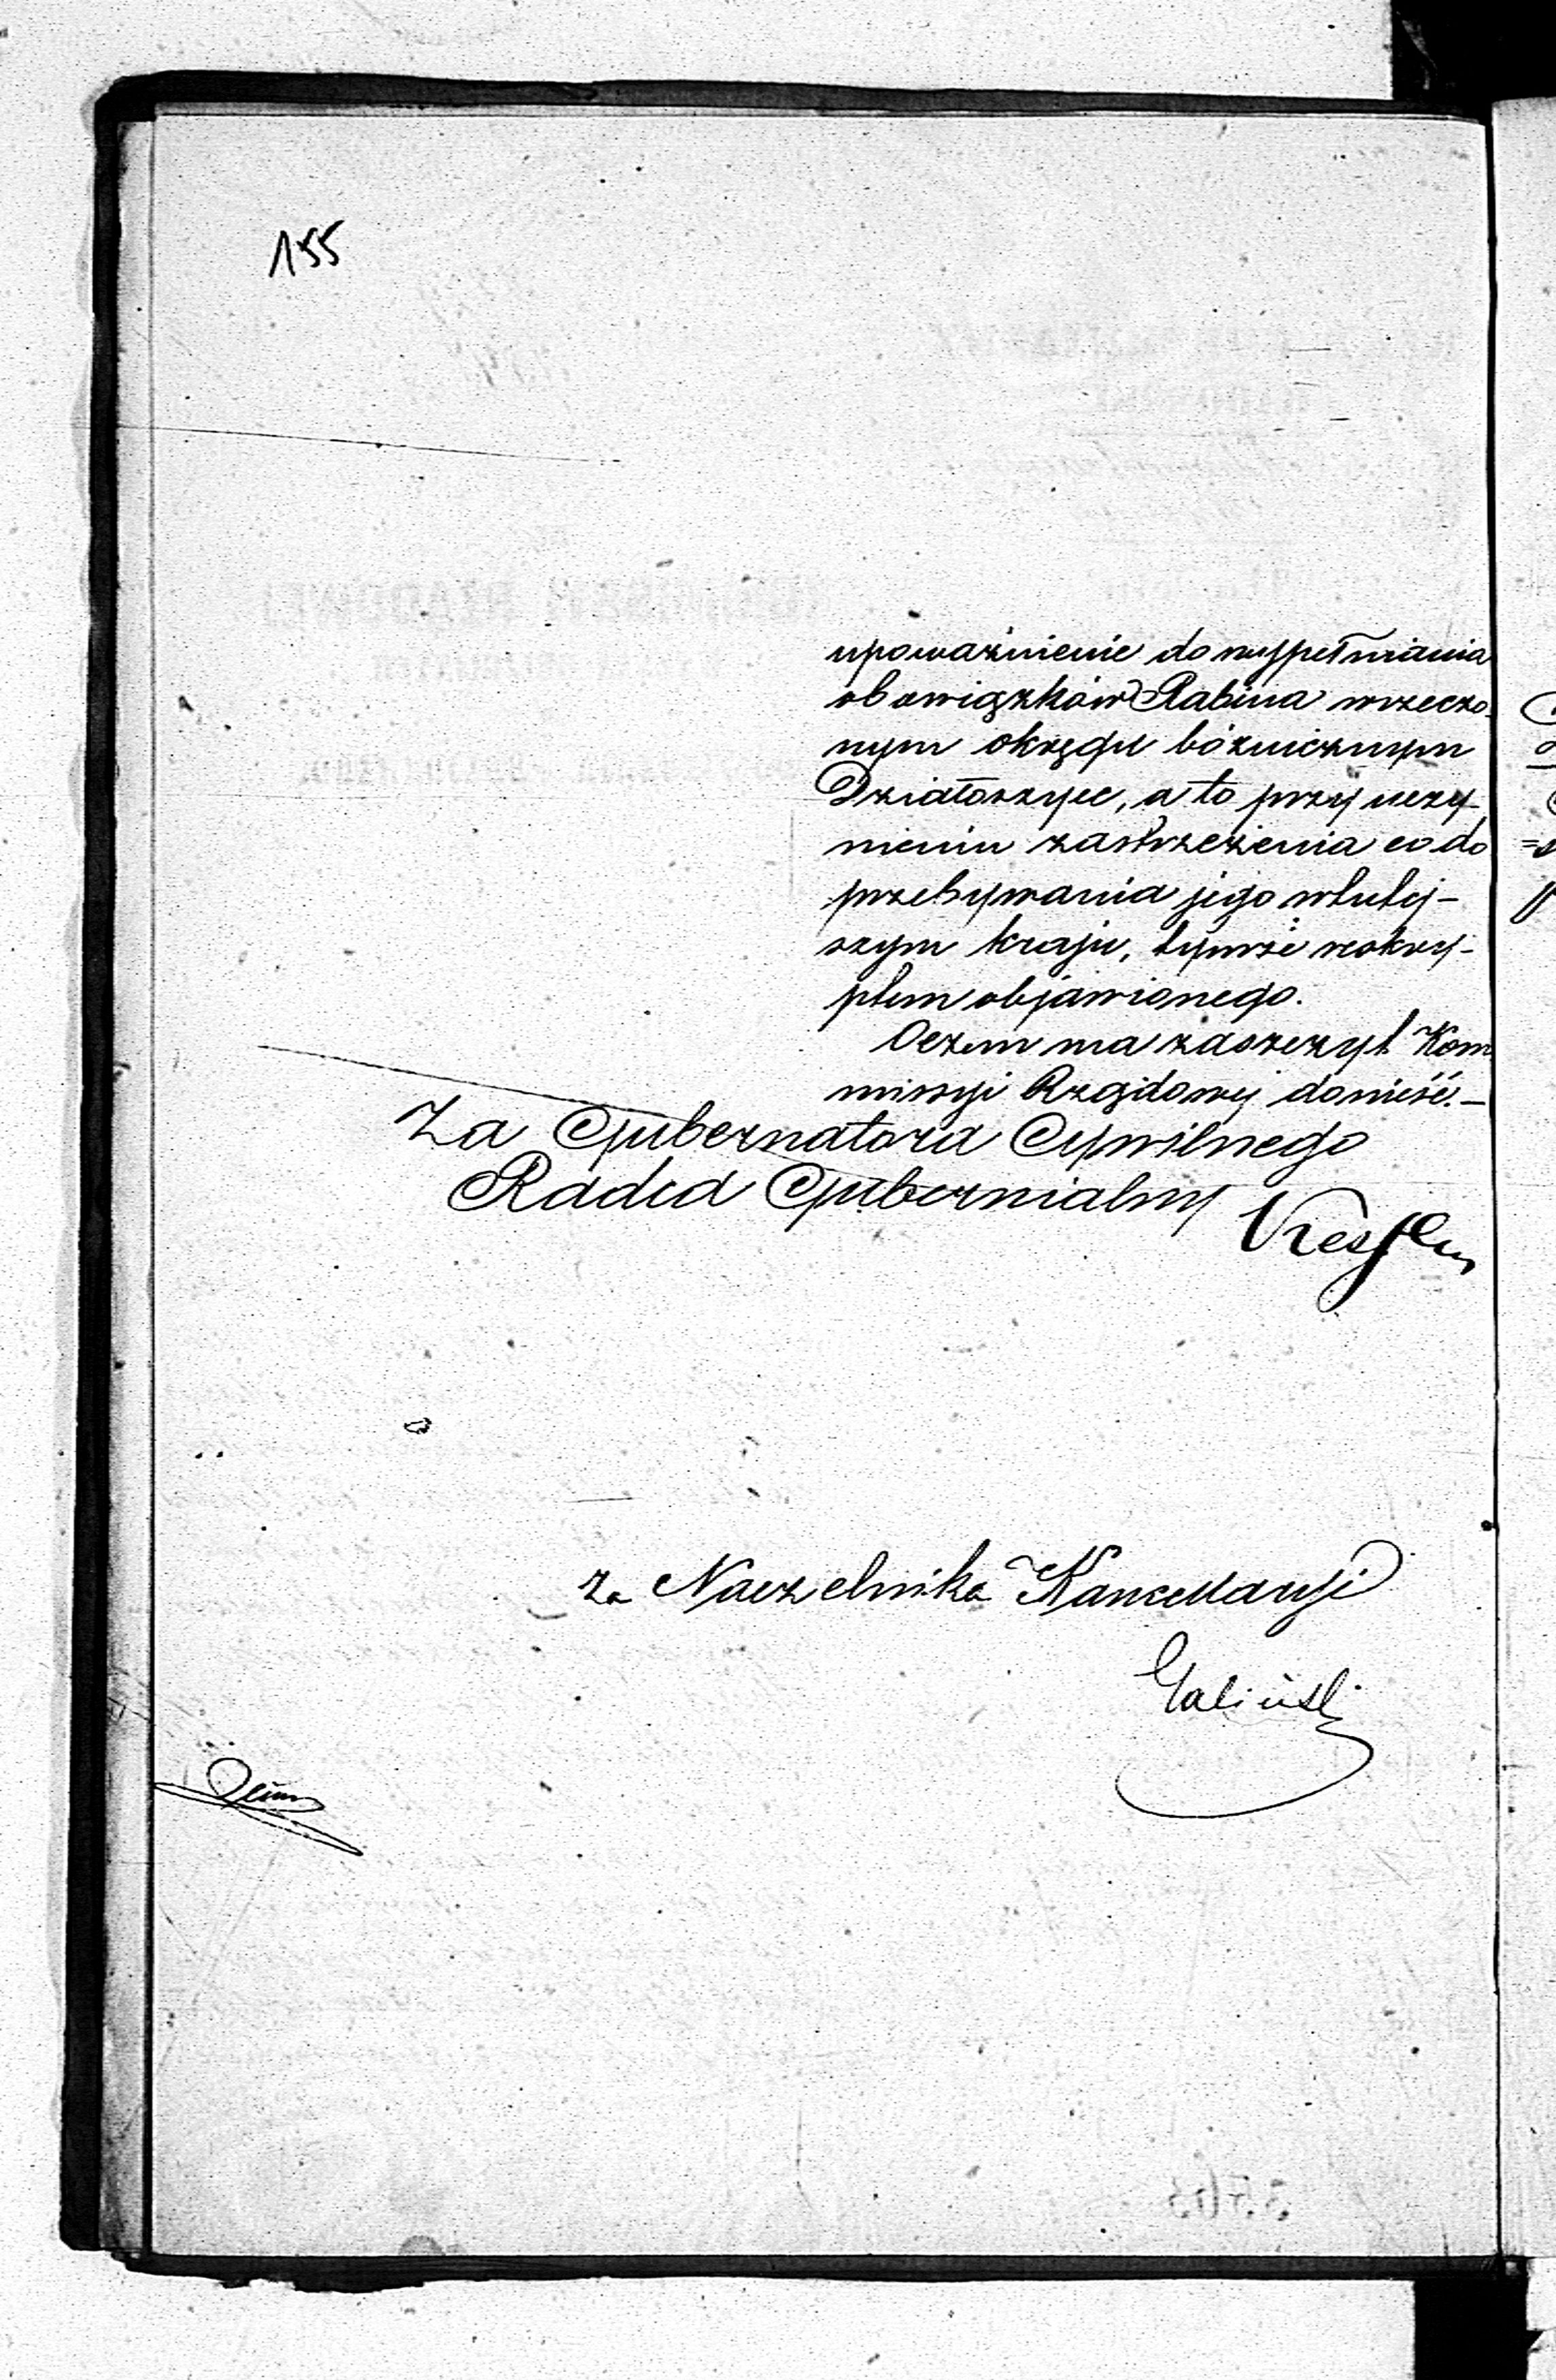 155
upoważnienie do wypełniania
obowiązków Rabina w rzeczo-
nym okręgu bóżnicznym
Działoszyce, a to przy uczy-
nieniu zastrzeżenia co do
przebywania jego w tutej-
szym kraju, tymże reskry-
ptem objawionego.
Oczem ma zaszczyt Kom
missyi Rządowej donieść.—
Za Gubernatora Cywilnego
Radca Gubernialny
za Naczelnika Kancellaryi